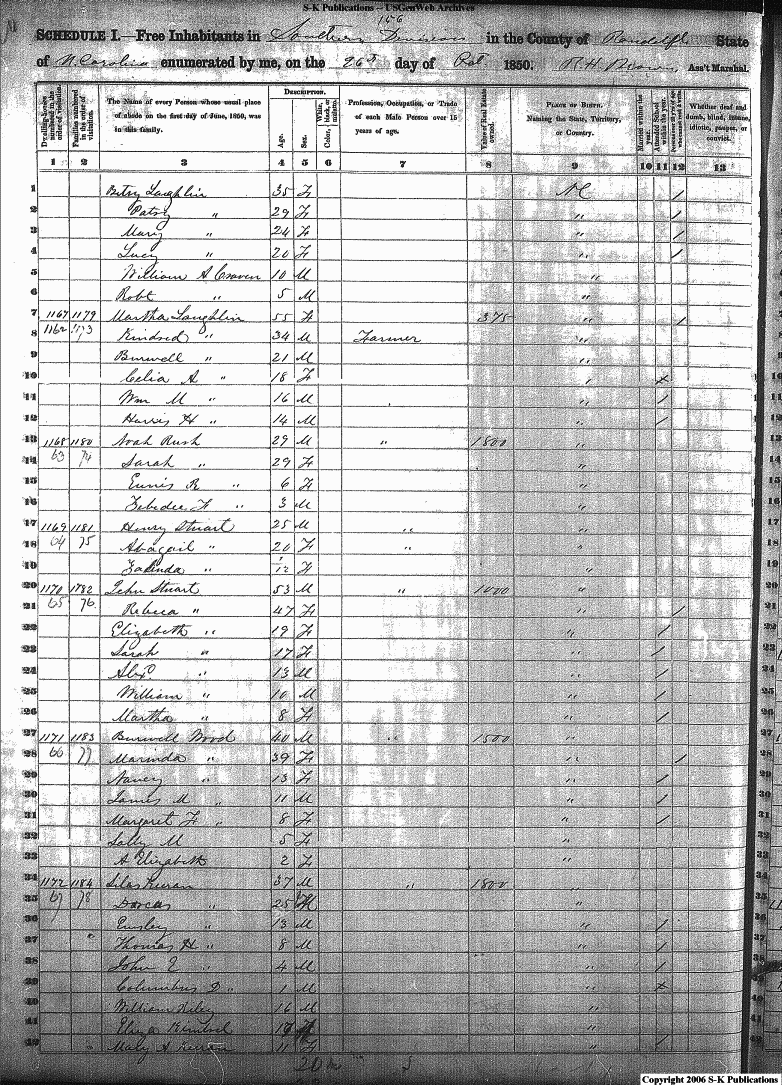 S-K Publications -- USGenWeb Archives
156
SCHEDULE I.—Free Inhabitants in Southern Division in the County of Randolph State
of N. Carolina enumerated by me, on the 26th day of Oct 1850. Ass't Marshal.
Dwelling-houses numbered in the order of visitation.
Families numbered in the order of visitation.
The Name of every Person whose usual place of abode on the first day of June, 1850, was in this family.
DESCRIPTION.
Age.
Sex.
White, black, or mulatto.
Color,
Profession, Occupation, or Trade of each Male Person over 15 years of age.
Value of Real Estate owned.
PLACE OF BIRTH. Naming the State, Territory, or Country.
Married within the year.
Attended School within the year.
Whether deaf and dumb, blind, insane, idiotic, pauper, or convict.
1 2 3 4 5 6 7 8 9 10 11 12 13
1 Betsy Laughlin 35 F NC /
2 Patsy " 29 F " /
3 Mary " 24 F " /
4 Lucy " 20 F " /
5 William A Craven 10 M "
6 Robt " 5 M "
7 1167 1179 Martha Laughlin 55 F 375 " /
8 Kindred " 34 M Farmer "
9 Burwell " 21 M "
10 Celia A " 18 F "
11 Wm M " 16 M " /
12 Harris H " 14 M " /
13 1168 1180 Noah Rush 29 M " 1800 "
14 63 74 Sarah " 29 F "
15 Eunis R " 6 F "
16 Zebedee F " 3 M "
17 1169 1181 Henry Stuart 25 M " "
18 64 75 Abagail " 20 F " "
19 " "
20 1170 1782 John Stuart 53 M " 1000 "
21 65 76 Rebeca " 47 F " /
22 Elizabeth " 19 F " /
23 Sarah " 17 F " /
24 Alex " 13 M " /
25 William " 10 M " /
26 Martha " 8 F " /
27 1171 1183 Burwell Wood 40 M " 1500 "
28 66 77 Marinda " 39 F " /
29 Nancy " 13 F " /
30 James M " 11 M " /
31 Margaret F " 8 F " /
32 Sally M 5 F "
33 A Elizabeth 2 F "
34 1172 1184 Silas 37 M " 1800
35 67 78 Dorcas " 25 "
36 Emsley " 13 M " /
37 Thomas H " 8 M " /
38 John E " 4 M " /
39 Columbus D " 1 M "
40 William 16 M "
41 "
42 Mary A 11 F " /
Copyright 2006 S-K Publications